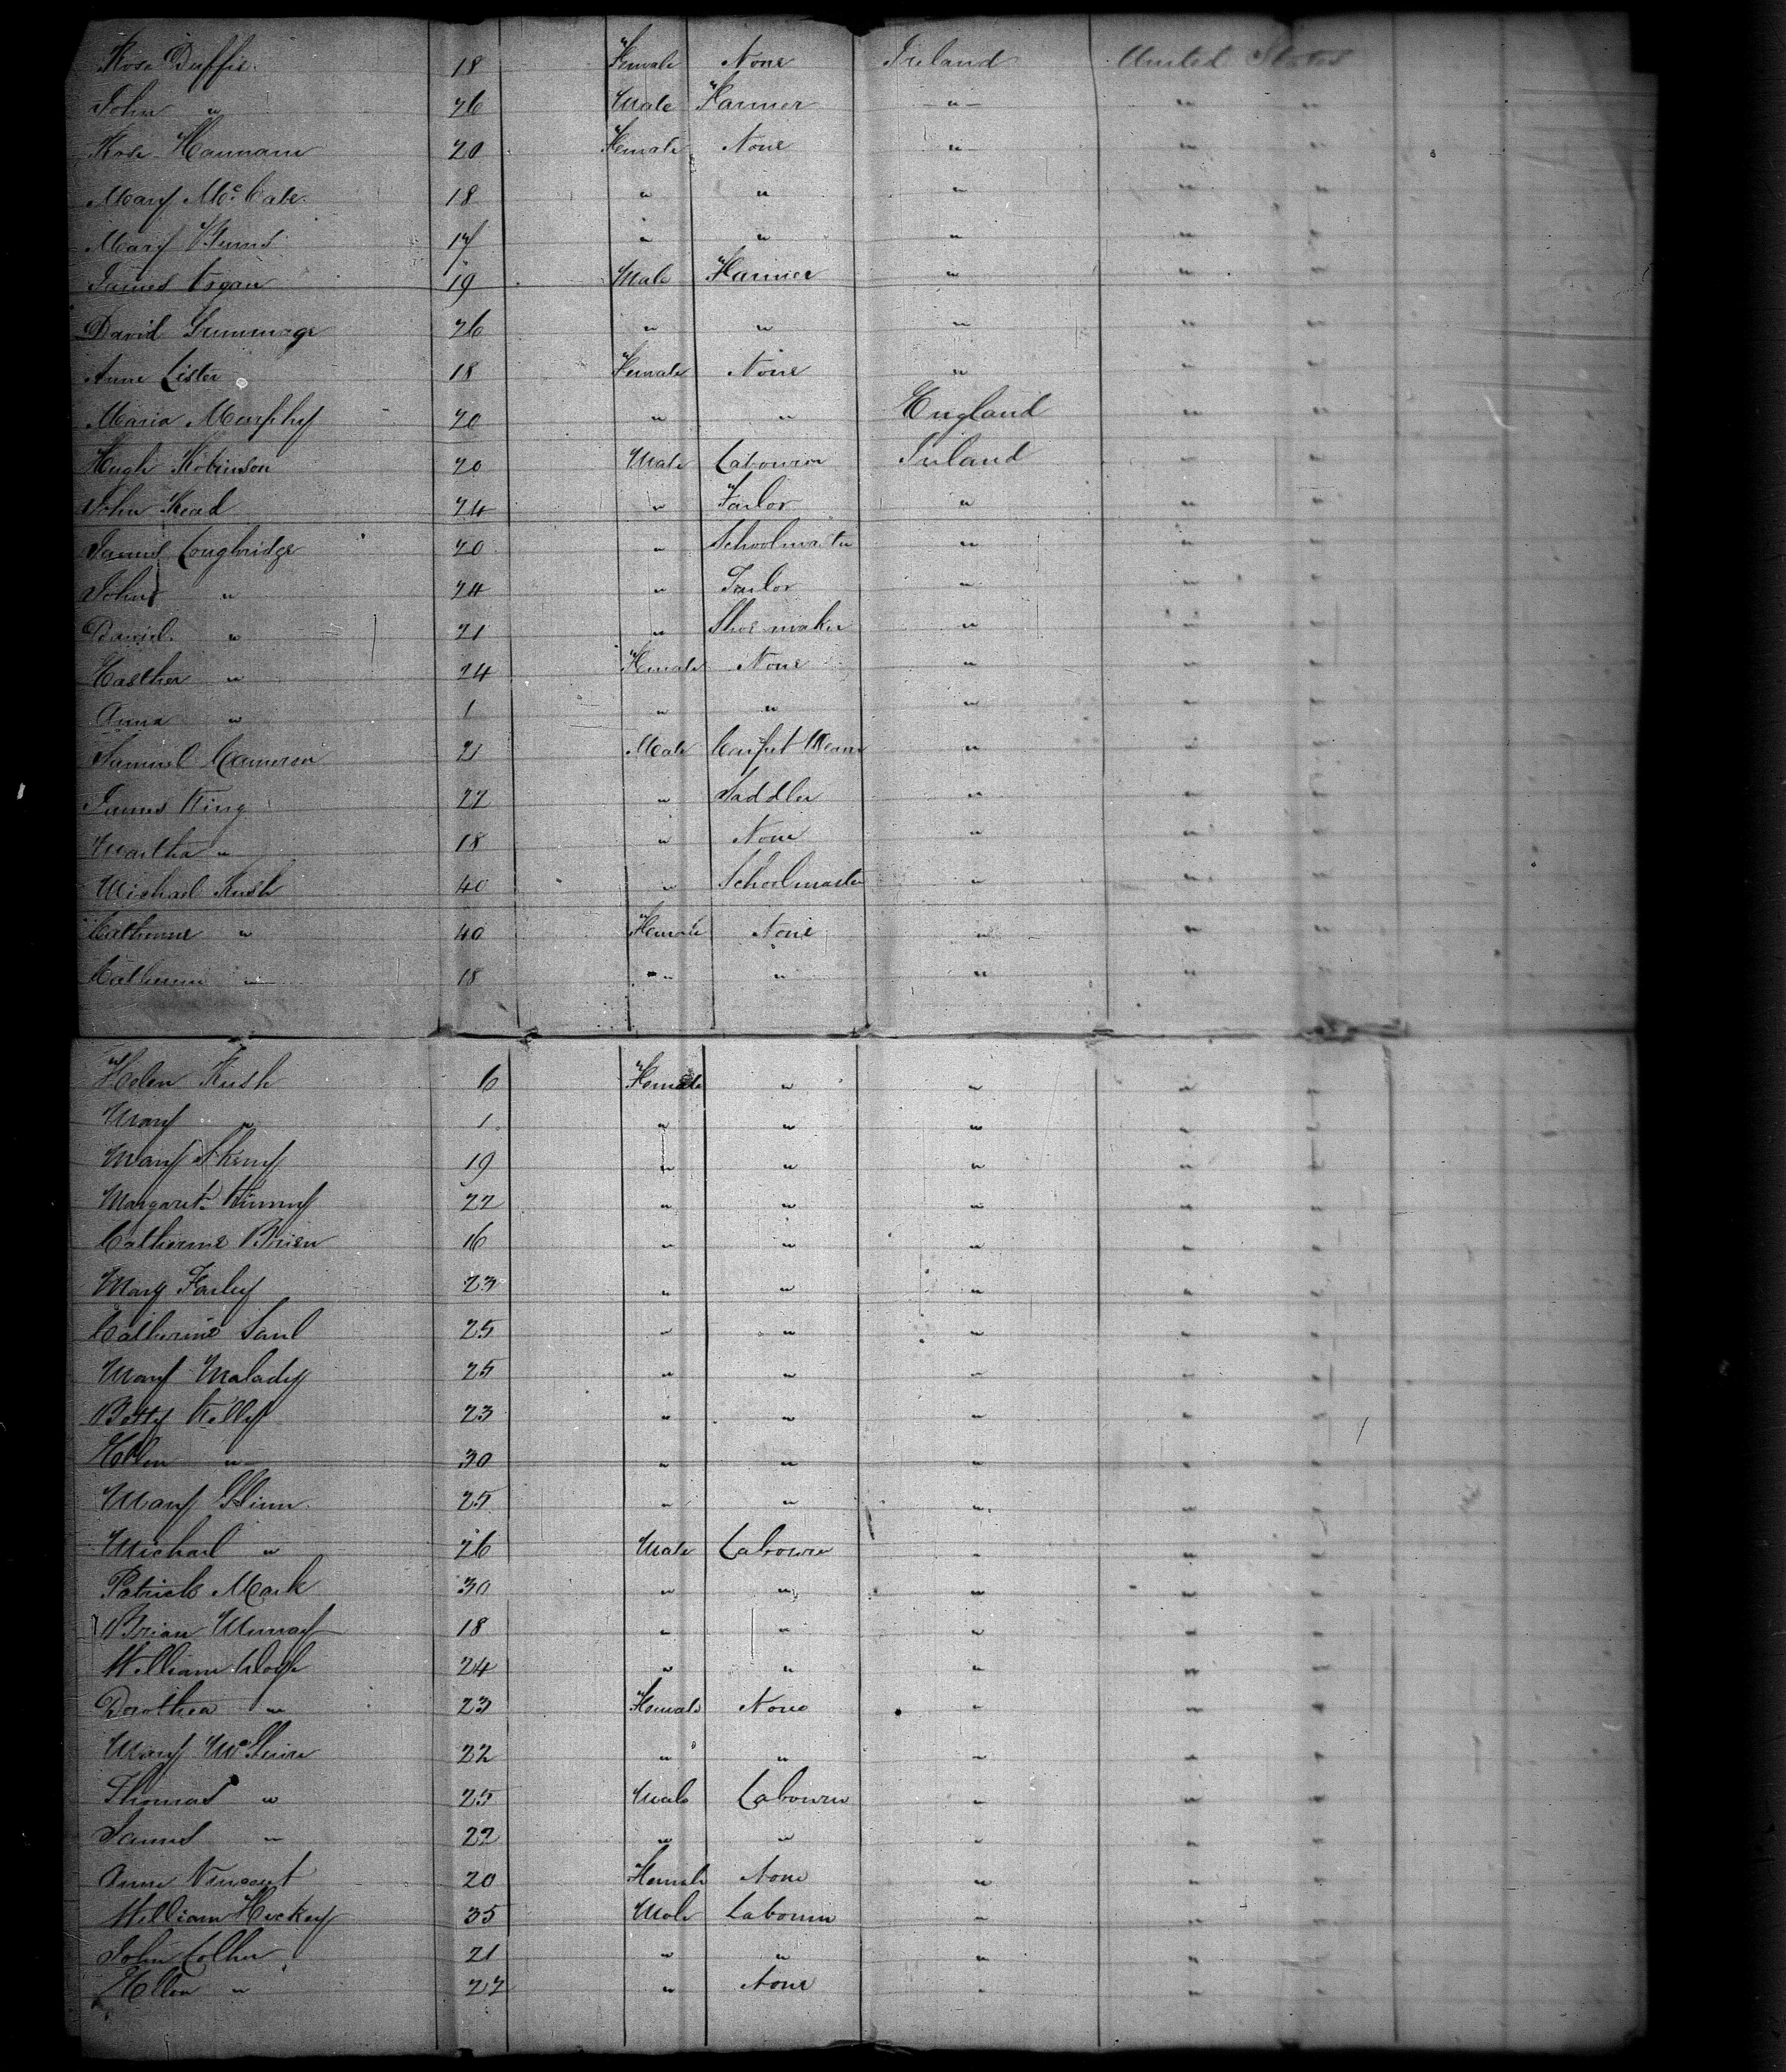 Rose Duffie 18 Female None Ireland United States
John " 26 Male Farmer " " "
Rose Hannann 20 Female None " " "
Mary Mc Cabe 18 " " " " "
Mary 17 " " " " "
James 19 Male Farmer " " "
David Grummage 26 " " " " "
Anne Lister 18 Female None " " "
Maria Murphy 20 " " England " "
Hugh Robinson 20 Male Labourer Ireland " "
John Read 24 " Tailor " " "
James Longbridge 20 " Schoolmaster " " "
John " 24 " Tailor " " "
David " 21 " Shoe maker " " "
Easther " 24 Female None " " "
Anna " 1 " " " " "
Samuel Cameron 21 Male Carpet Weaver " " "
James King 22 " Saddler " " "
Martha " 18 " None " " "
Michael Rush 40 " Schoolmaster " " "
Catherine " 40 Female None " " "
Catherine " 18 " " " " "
Helen Rush 6 Female " " " "
Mary " 1 " " " " "
Mary 19 " " " " "
Margaret Kinny 22 " " " " "
Catherine Brien 16 " " " " "
Mary Farley 23 " " " " "
Catherine Saul 25 " " " " "
Mary Malady 25 " " " " "
Betty Kelly 23 " " " " "
Ellen " 30 " " " " "
Mary Glinn 25 " " " " "
Michael " 26 Male Labourer " " "
Patrick Mark 30 " " " " "
Brian Murray 18 " " " " "
William Doyle 24 " " " " "
Dorothea " 23 Female None " " "
Mary 22 " " " " "
Thomas " 25 Male Labourer " " "
James " 22 " " " " "
Anne Vincent 20 Female None " " "
William Hickey 35 Male Labourer " " "
John Collier 21 " " " " "
Ellen " 22 " None " " "